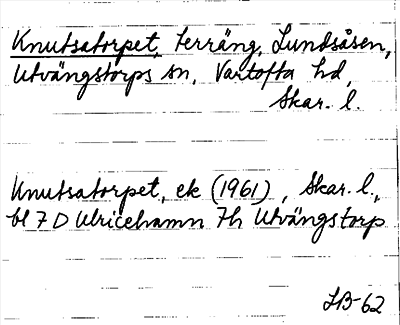 Knutsatorpet, terräng, Lundsåsen,
Utvängstorps sn, Vartofta hd,
Skar. l.
Knutsatorpet, ek (1961), Skar. l.,
bl 7 D Ulricehamn 7h Utvängstorp
JB-62